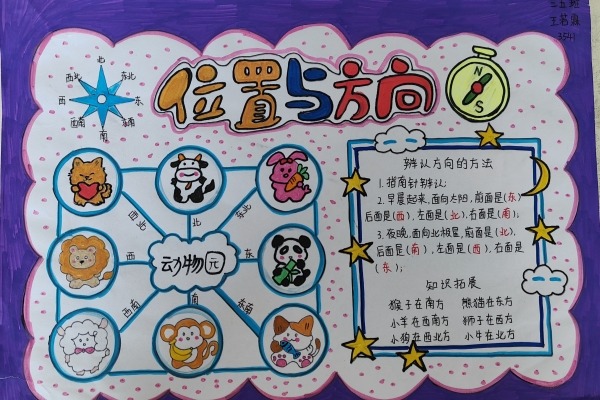 三五班
3541
位置与方向
北
西北 东北
西 东
西南 东南
南
N
S
西北
北
东北
西
动物园
东
西南
南
东南
辨认方向的方法
1.指南针辨认:
2.早晨起来,面向太阳,前面是(东)
后面是(西),左面是(北),右面是(南);
3.夜晚,面向北极星,前面是(北),
后面是(南),左面是(西),右面是
(东);
知识拓展
猴子在南方 熊猫在东方
小羊在西南方 狮子在西方
小狗在西北方 小牛在北方